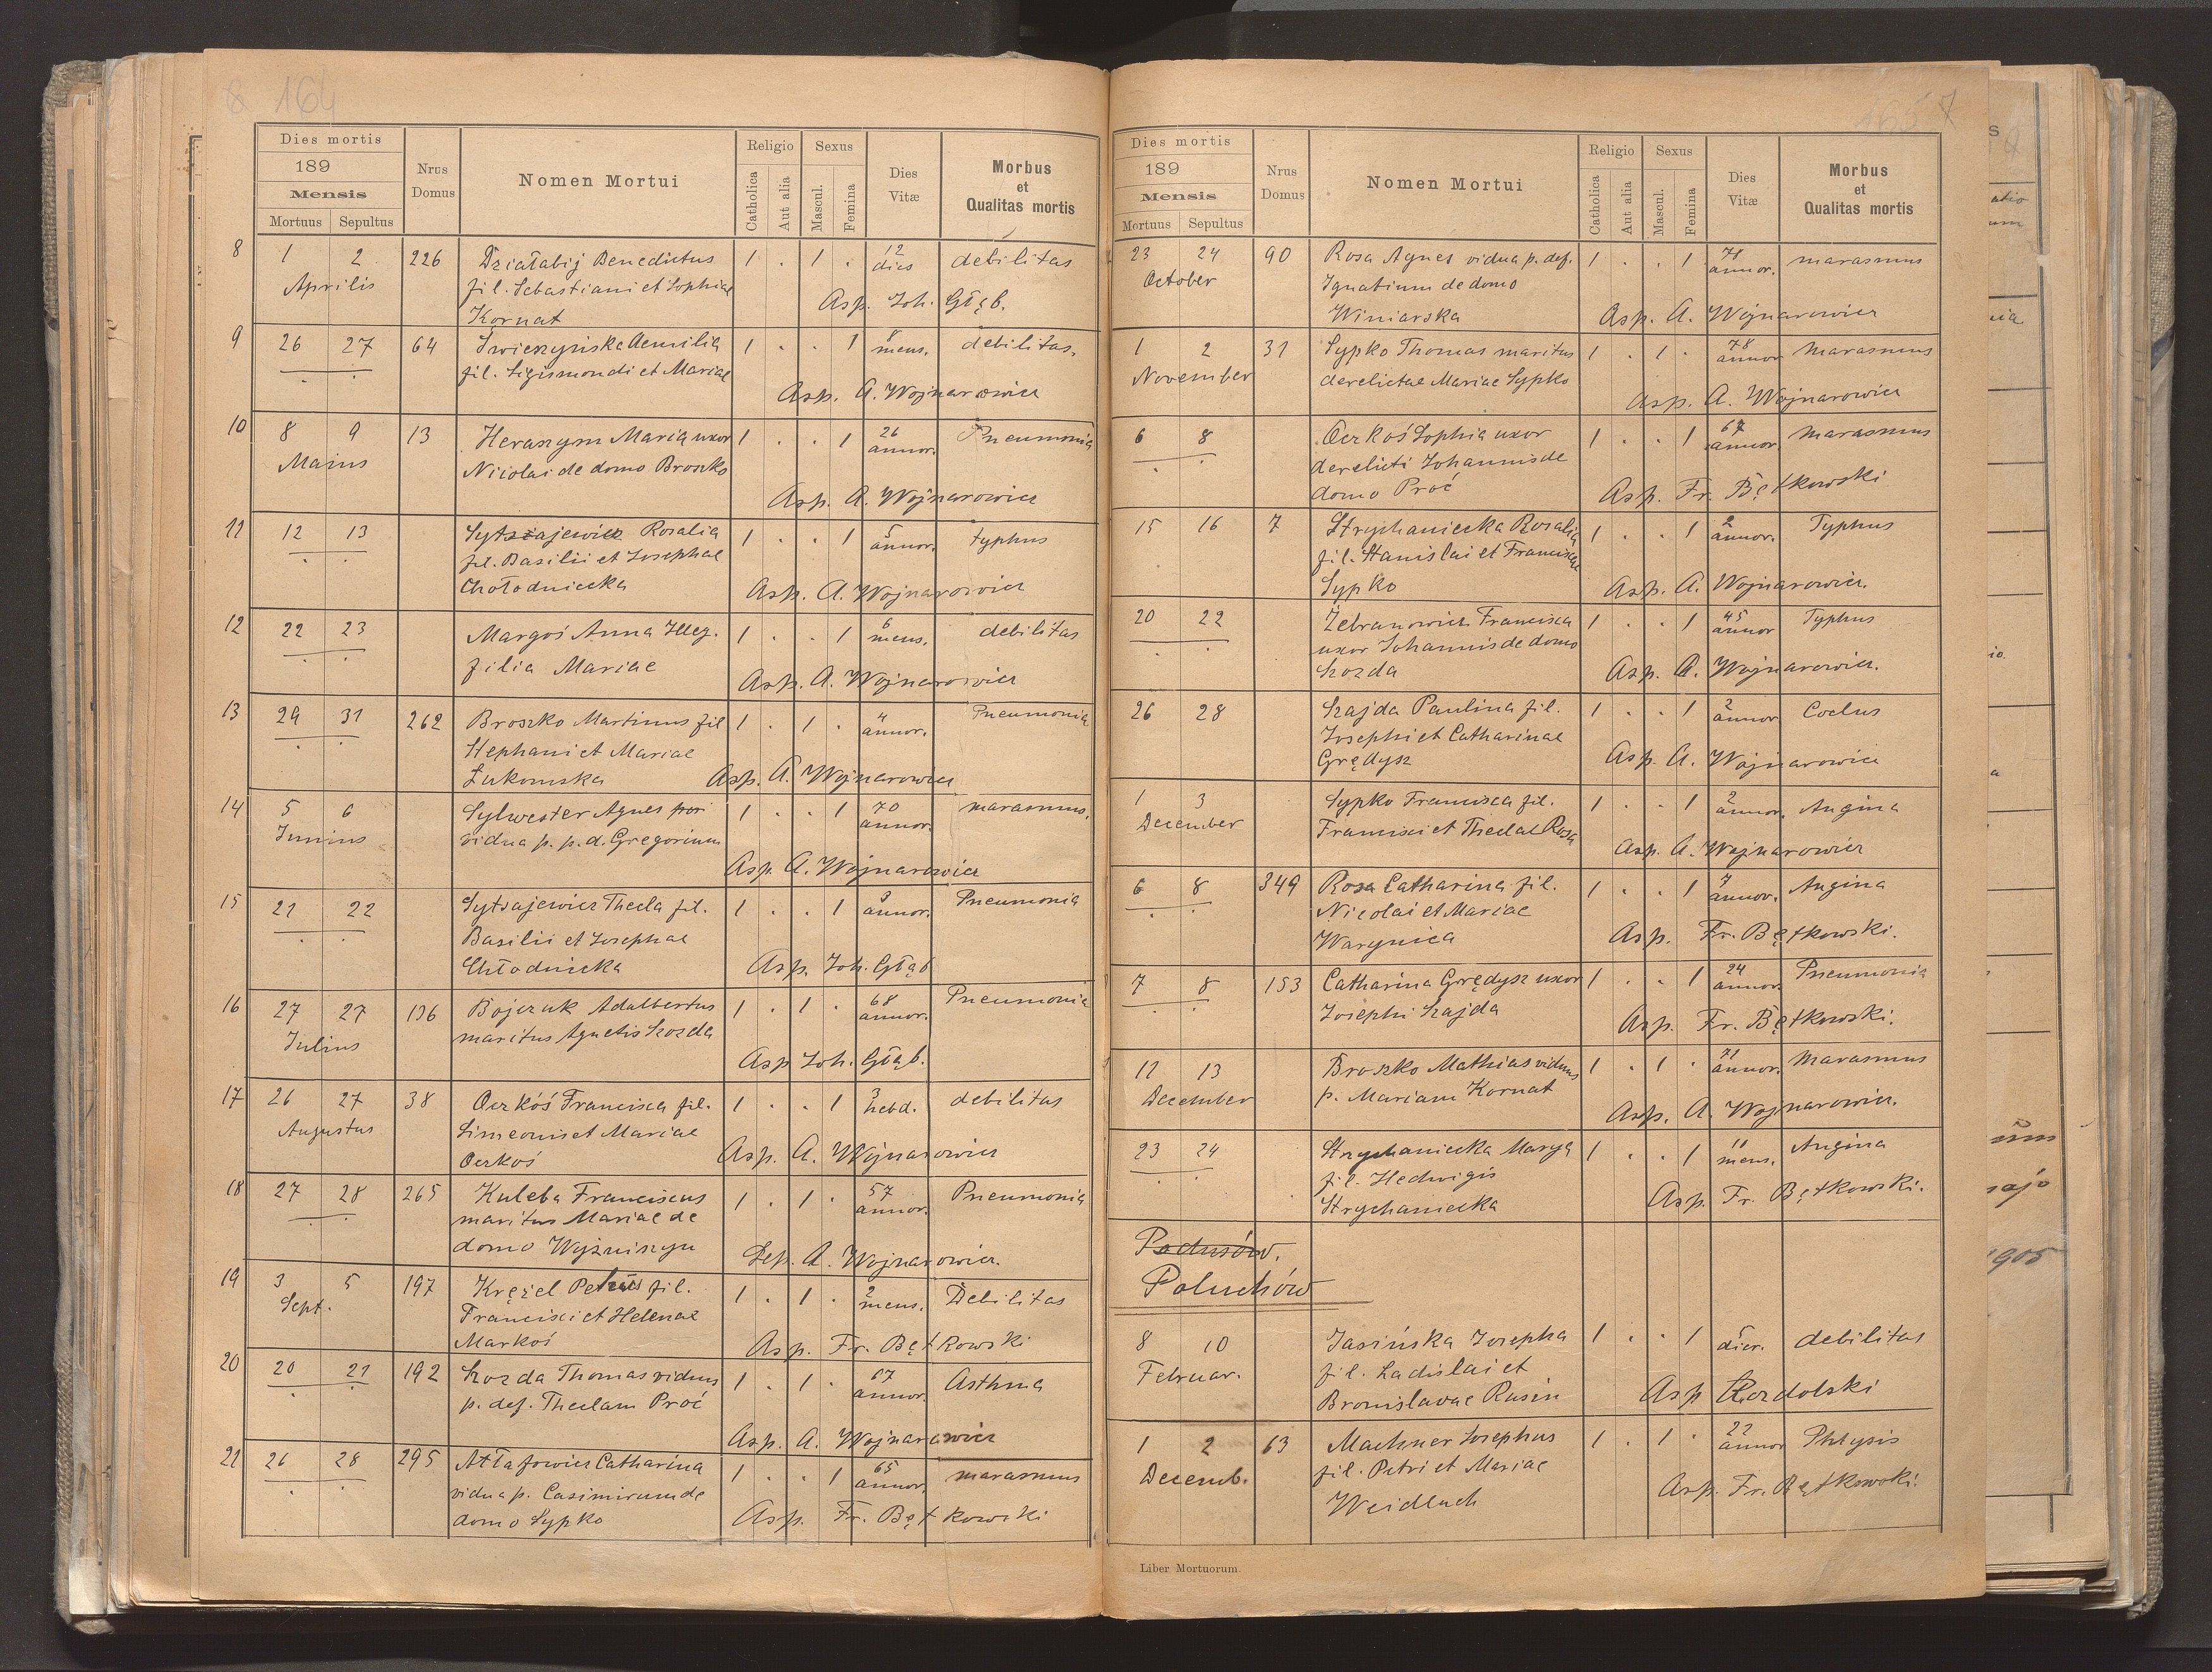 164
Dies mortis
189
Mensis
Mortuus Sepultus
Nrus Domus
Nomen Mortui
Religio
Catholica
Aut alia
Sexus
Mascul.
Femina
Dies Vitæ
Morbus et Qualitas mortis
8 1 2 226 Działabij Benedictus 1 . 1 . 12 dies debilitas
Aprilis fil. Sebastiani et Sophiae Asp. Joh. Głąb.
Kornat
9 26 27 64 Świerzyńska Aemilia 1 . . 1 mens. debilitas.
fil. Sigismondi et Mariae
Asp. A. Wojnarowicz
10 8 9 13 Heraszym Maria uxor 1 . . 1 26 annor. Pneumonia
Maius Nicolai de domo Broszko
Asp. A. Wojnarowicz
11 12 13 Sytszajewicz Rosalia 1 . . 1 5 annor. typhus
fil. Basilii et Josephae
Chołodniecka Asp. A. Wojnarowicz
12 22 23 Margoś Anna Illeg. 1 . . 1 6 mens. debilitas
filia Mariae
Asp. A. Wojnarowicz
13 29 31 262 Broszko Martinus fil 1 . 1 . 4 annor. Pneumonia
Stephani et Mariae
Łukomska Asp. A. Wojnarowicz
14 5 6 Sylwester Agnes 1 . . 1 70 annor. marasmus.
Junius vidua p. p. d. Gregorium
Asp. A. Wojnarowicz
15 21 22 Sytsajewicz Thecla fil. 1 . . 1 annor. Pneumonia
Basilii et Josephae
Chłodnicka Asp. Joh. Głąb
16 27 27 136 Bojczuk Adalbertus 1 . 1 . 68 annor. Pneumonia
Julius maritus Agnetis Szozda
Asp Joh. Głąb.
17 26 27 38 Oczkóś Francisca fil. 1 . . 1 3 hebd. debilitas
Augustus Simeonis et Mariae
Oczkoś Asp. A. Wojnarowicz
18 27 28 265 Kuleba Franciscus 1 . 1 . 57 annor. Pneumonia
maritus Mariae de
domo Wyzniszyn Sep. A. Wojnarowicz.
19 3 5 197 Krężel Petrus fil. 1 . 1 . 2 mens. Debilitas
Sept. Francisci et Helenae
Markoś Asp. Fr. Bętkowski
20 20 21 192 Szozda Thomas viduus 1 . 1 . 67 annor. Asthma
p. def. Theclam Proć
Asp. A. Wojnarowicz
21 26 28 295 Attafowicz Catharina 1 . . 1 65 annor. marasmus
vidua p. Casimirum de
domo Sypko Asp. Fr. Bętkowski
165 7
Dies mortis
189
Mensis
Mortuus Sepultus
Nrus Domus
Nomen Mortui
Religio
Catholica
Aut alia
Sexus
Mascul.
Femina
Dies Vitæ
Morbus et Qualitas mortis
23 24 90 Rosa Agnes vidua p. def. 1 . . 1 71 annor. marasmus
October Ignatium de domo
Winiarska Asp. A. Wojnarowicz
1 2 31 Sypko Thomas maritus 1 . 1 . 78 annor marasmus
November derelictae Mariae Sypko
Asp. A. Wojnarowicz
6 8 Oczkoś Sophia uxor 1 . . 1 67 annor. marasmus
derelicti Johannis de
domo Proć Asp. Fr. Bętkowski
15 16 7 Strychaniecka Rosalia 1 . . 1 2 annor. Typhus
fil. Stanislai et Franciscae
Sypko Asp. A. Wojnarowicz.
20 22 Zebranowicz Francisca 1 . . 1 45 annor Typhus
uxor Johannis de domo
Szozda Asp. A. Wojnarowicz.
26 28 Szajda Paulina fil. 1 . . 1 2 annor Coclus
Josephi et Catharinae
Grędysz Asp. A. Wojnarowicz
1 3 Sypko Francisca fil. 1 . . 1 2 annor. Angina
December Francisci et Theclae Rosa
Asp. A. Wojnarowicz
6 8 349 Rosa Catharina fil. 1 . . 1 annor. Angina
Nicolai et Mariae
Warynica Asp. Fr. Bętkowski.
7 8 153 Catharina Grędysz uxor 1 . . 1 24 annor. Pneumonia
Josephi Szajda
Asp. Fr. Bętkowski.
12 13 Broszko Mathias viduus 1 . 1 . 71 annor. Marasmus
December p. Mariam Kornat
Asp. A. Wojnarowicz.
23 24 Strychaniecka Marya 1 . . 1 11 mens. Angina
fil. Hedwigis
Strychaniecka Asp. Fr. Bętkowski.
Podusów.
Poluchów
8 10 Jasińska Josepha 1 . . 1 dier. debilitas
Februar. fil. Ladislai et
Bronislavae Rusin Asp Rozdolski
1 2 63 Machner Josephus 1 . 1 . 22 annor Phtysis
Decemb. fil. Petri et Mariae
Weidlach Asp. Fr. Bętkowski.
Liber Mortuorum